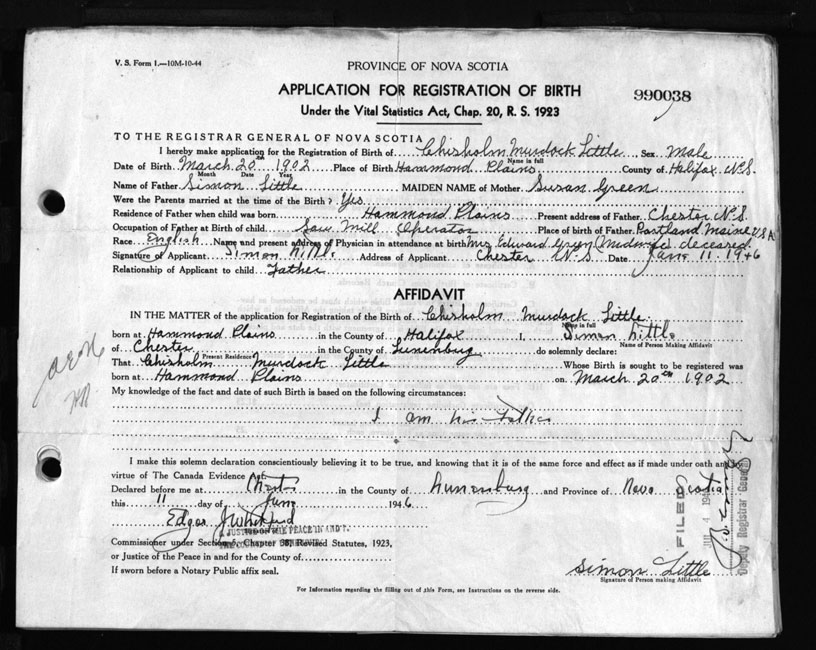 V. S. Form 1.—10M-10-44
PROVINCE OF NOVA SCOTIA
APPLICATION FOR REGISTRATION OF BIRTH
990038
Under the Vital Statistics Act, Chap. 20, R. S. 1923
TO THE REGISTRAR GENERAL OF NOVA SCOTIA
I hereby make application for the Registration of Birth of Chisholm Murdock Little Sex Male
Name in full
Date of Birth March 20th 1902 Place of Birth Hammond Plains County of Halifax N.S.
Month Date Year
Name of Father Simon Little MAIDEN NAME of Mother Susan Green
Were the Parents married at the time of the Birth? Yes
Residence of Father when child was born Hammond Plains Present address of Father Chester N.S.
Occupation of Father at Birth of child Saw Mill Operator Place of birth of Father Portland Maine U.S.A
Race English Name and present address of Physician in attendance at birth Mrs Edward Green (Midwife) deceased
Signature of Applicant Simon Address of Applicant Chester N.S. Date 11. 1946
Relationship of Applicant to child Father
AFFIDAVIT
IN THE MATTER of the application for Registration of the Birth of Chisholm Murdock Little
Name in full
born at Hammond Plains in the County of Halifax I, Simon Little
Name of Person Making Affidavit
of Chester in the County of Lunenburg do solemnly declare:
Present Residence
That Chisholm Murdock Little Whose Birth is sought to be registered was
born at Hammond Plains on March 20th 1902
My knowledge of the fact and date of such Birth is based on the following circumstances:
I am his Father
I make this solemn declaration conscientiously believing it to be true, and knowing that it is of the same force and effect as if made under oath and by
virtue of The Canada Evidence Act.
Declared before me at Chester in the County of Lunenburg and Province of Nova Scotia
this 11 day of 1946
Edgar
JUSTICE OF THE PEACE IN AND
Commissioner under Section 5, Chapter 38, Revised Statutes, 1923,
or Justice of the Peace in and for the County of
If sworn before a Notary Public affix seal.
Simon Little
Signature of Person making Affidavit
For Information regarding the filling out of this Form, see Instructions on the reverse side.
FILED
Deputy Registrar General